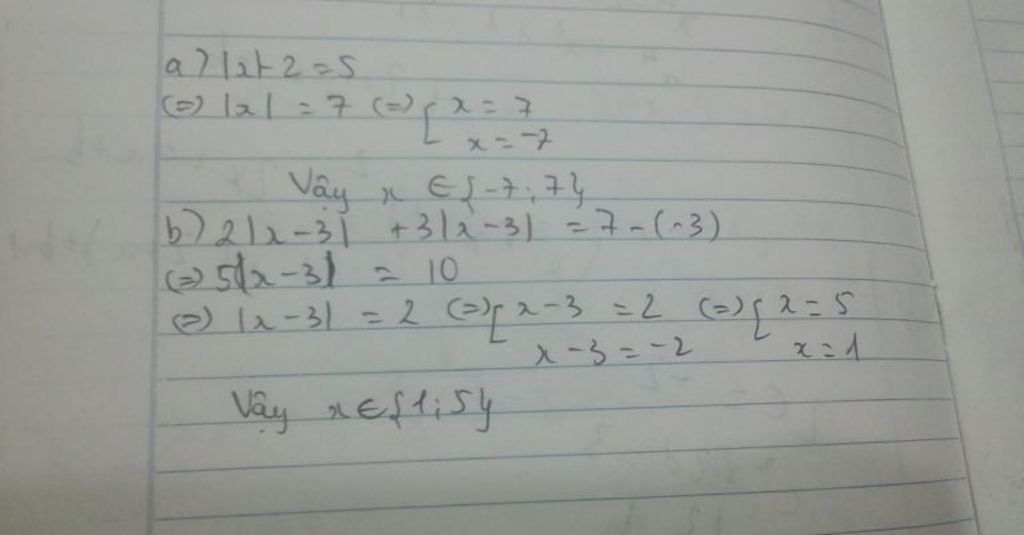 a) |x| - 2 = 5
(=) |x| = 7 (=) [ x = 7
x = -7
Vậy x ∈ {-7; 7}
b) 2|x - 3| + 3|x - 3| = 7 - (-3)
(=) 5|x - 3| = 10
(=) |x - 3| = 2 (=) [ x - 3 = 2 (=) [ x = 5
x - 3 = -2 x = 1
Vậy x ∈ {1; 5}